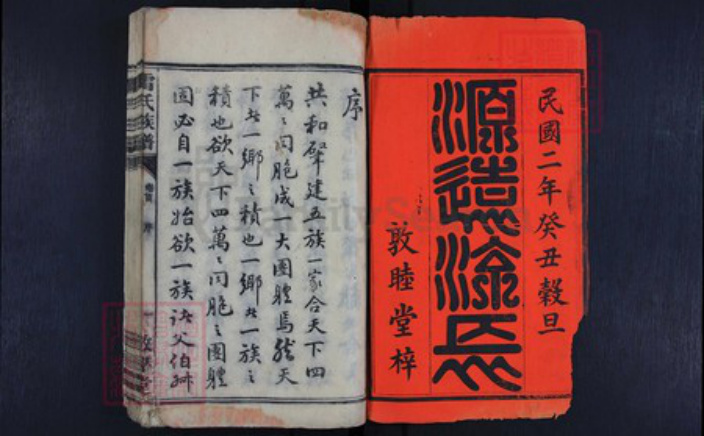 民國二年癸丑穀旦
源遠流長
敦睦堂梓
序
共和肇建五族一家合天下四
萬〻同胞成一大團體焉然天
下者一鄉〻積也一鄉者一族〻
積也欲天下四萬〻同胞〻團體
固必自一族始欲一族諸父伯叔
雷氏族譜
卷首 序
一 敦睦堂